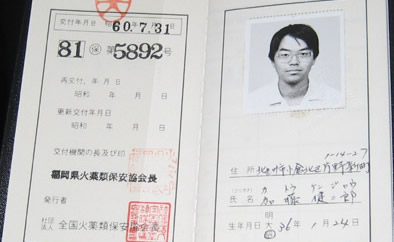 交付年月日 昭和 60.7.31
81 保 第 5892 号
再交付 年月日
昭和 年 月 日
更新交付年月日
昭和 年 月 日
交付機関の長及び印
福岡県火薬類保安協会長
発行者
社団法人 全国火薬類保安協会
住所 北九州市小倉北区
カトウ ケンジロウ
氏名 加藤健二郎
明
生年月日 大 36年1月24日
昭